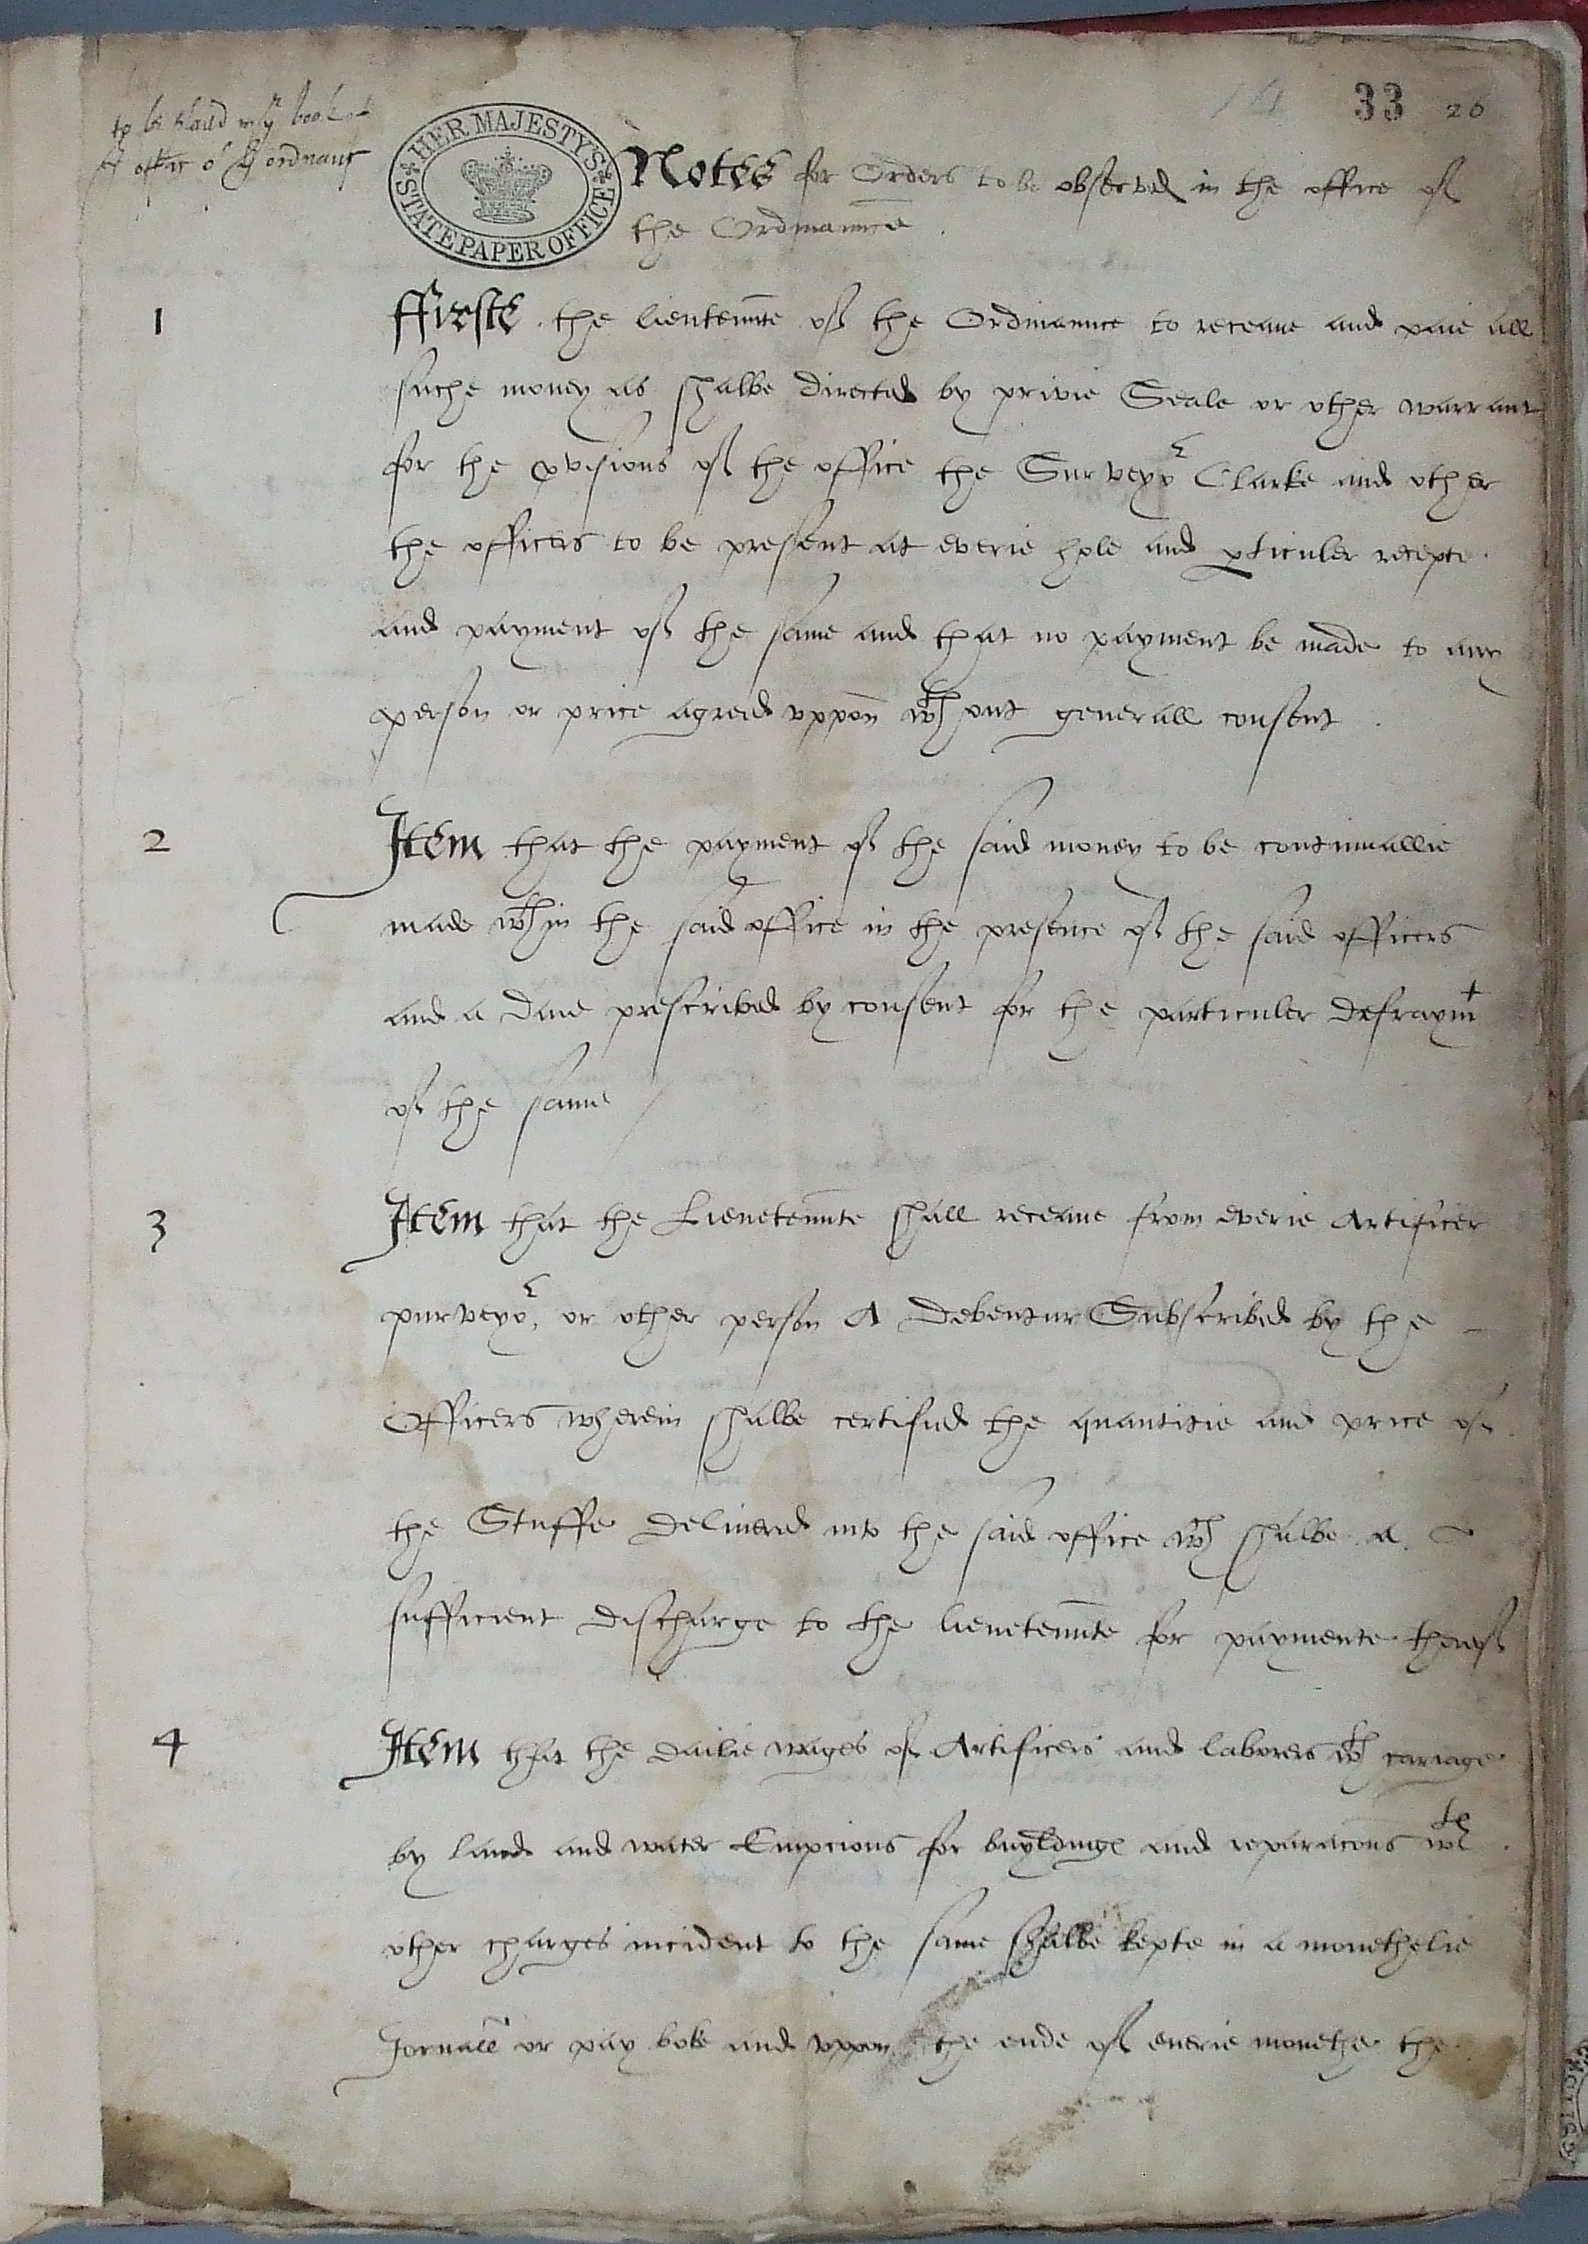 33 26
to be
HER MAJESTY'S
STATE PAPER OFFICE
Notes for Orders to be observed in the office of
the Ordinaunce
1
ffirste the lieutennte of the Ordinaunce to receaue and paie all
suche money as shalbe directed by privie Seale or other warrant
for the pvisions of the office the Surveyor Clarke and other
the officers to be present at everie hole and pticuler recepte
and payment of the same and that no payment be made to any
person or price agreed vppon wth out generall consent
2
Item that the payment of the said money to be continuallie
made wthin the said office in the presence of the said officers
and a daie prescribed by consent for the particuler defraymt
of the same
3
Item that the Lieuetennte shall receaue from everie Artificer
purveyor, or other person A Debentur Subscribed by the
Officers wherein shalbe certified the quantitie and price of
the Stuffe deliuered into the said office wch shalbe a
sufficient discharge to the lieuetennte for paymente thereof
4
Item that the dailie wages of Artificers and laborers wth cariage
by land and water Empcions for buyldinge and reparacons wth
other charges incident to the same shalbe kepte in a monethelie
Jornall or pay boke and vppon the ende of euerie monethe the